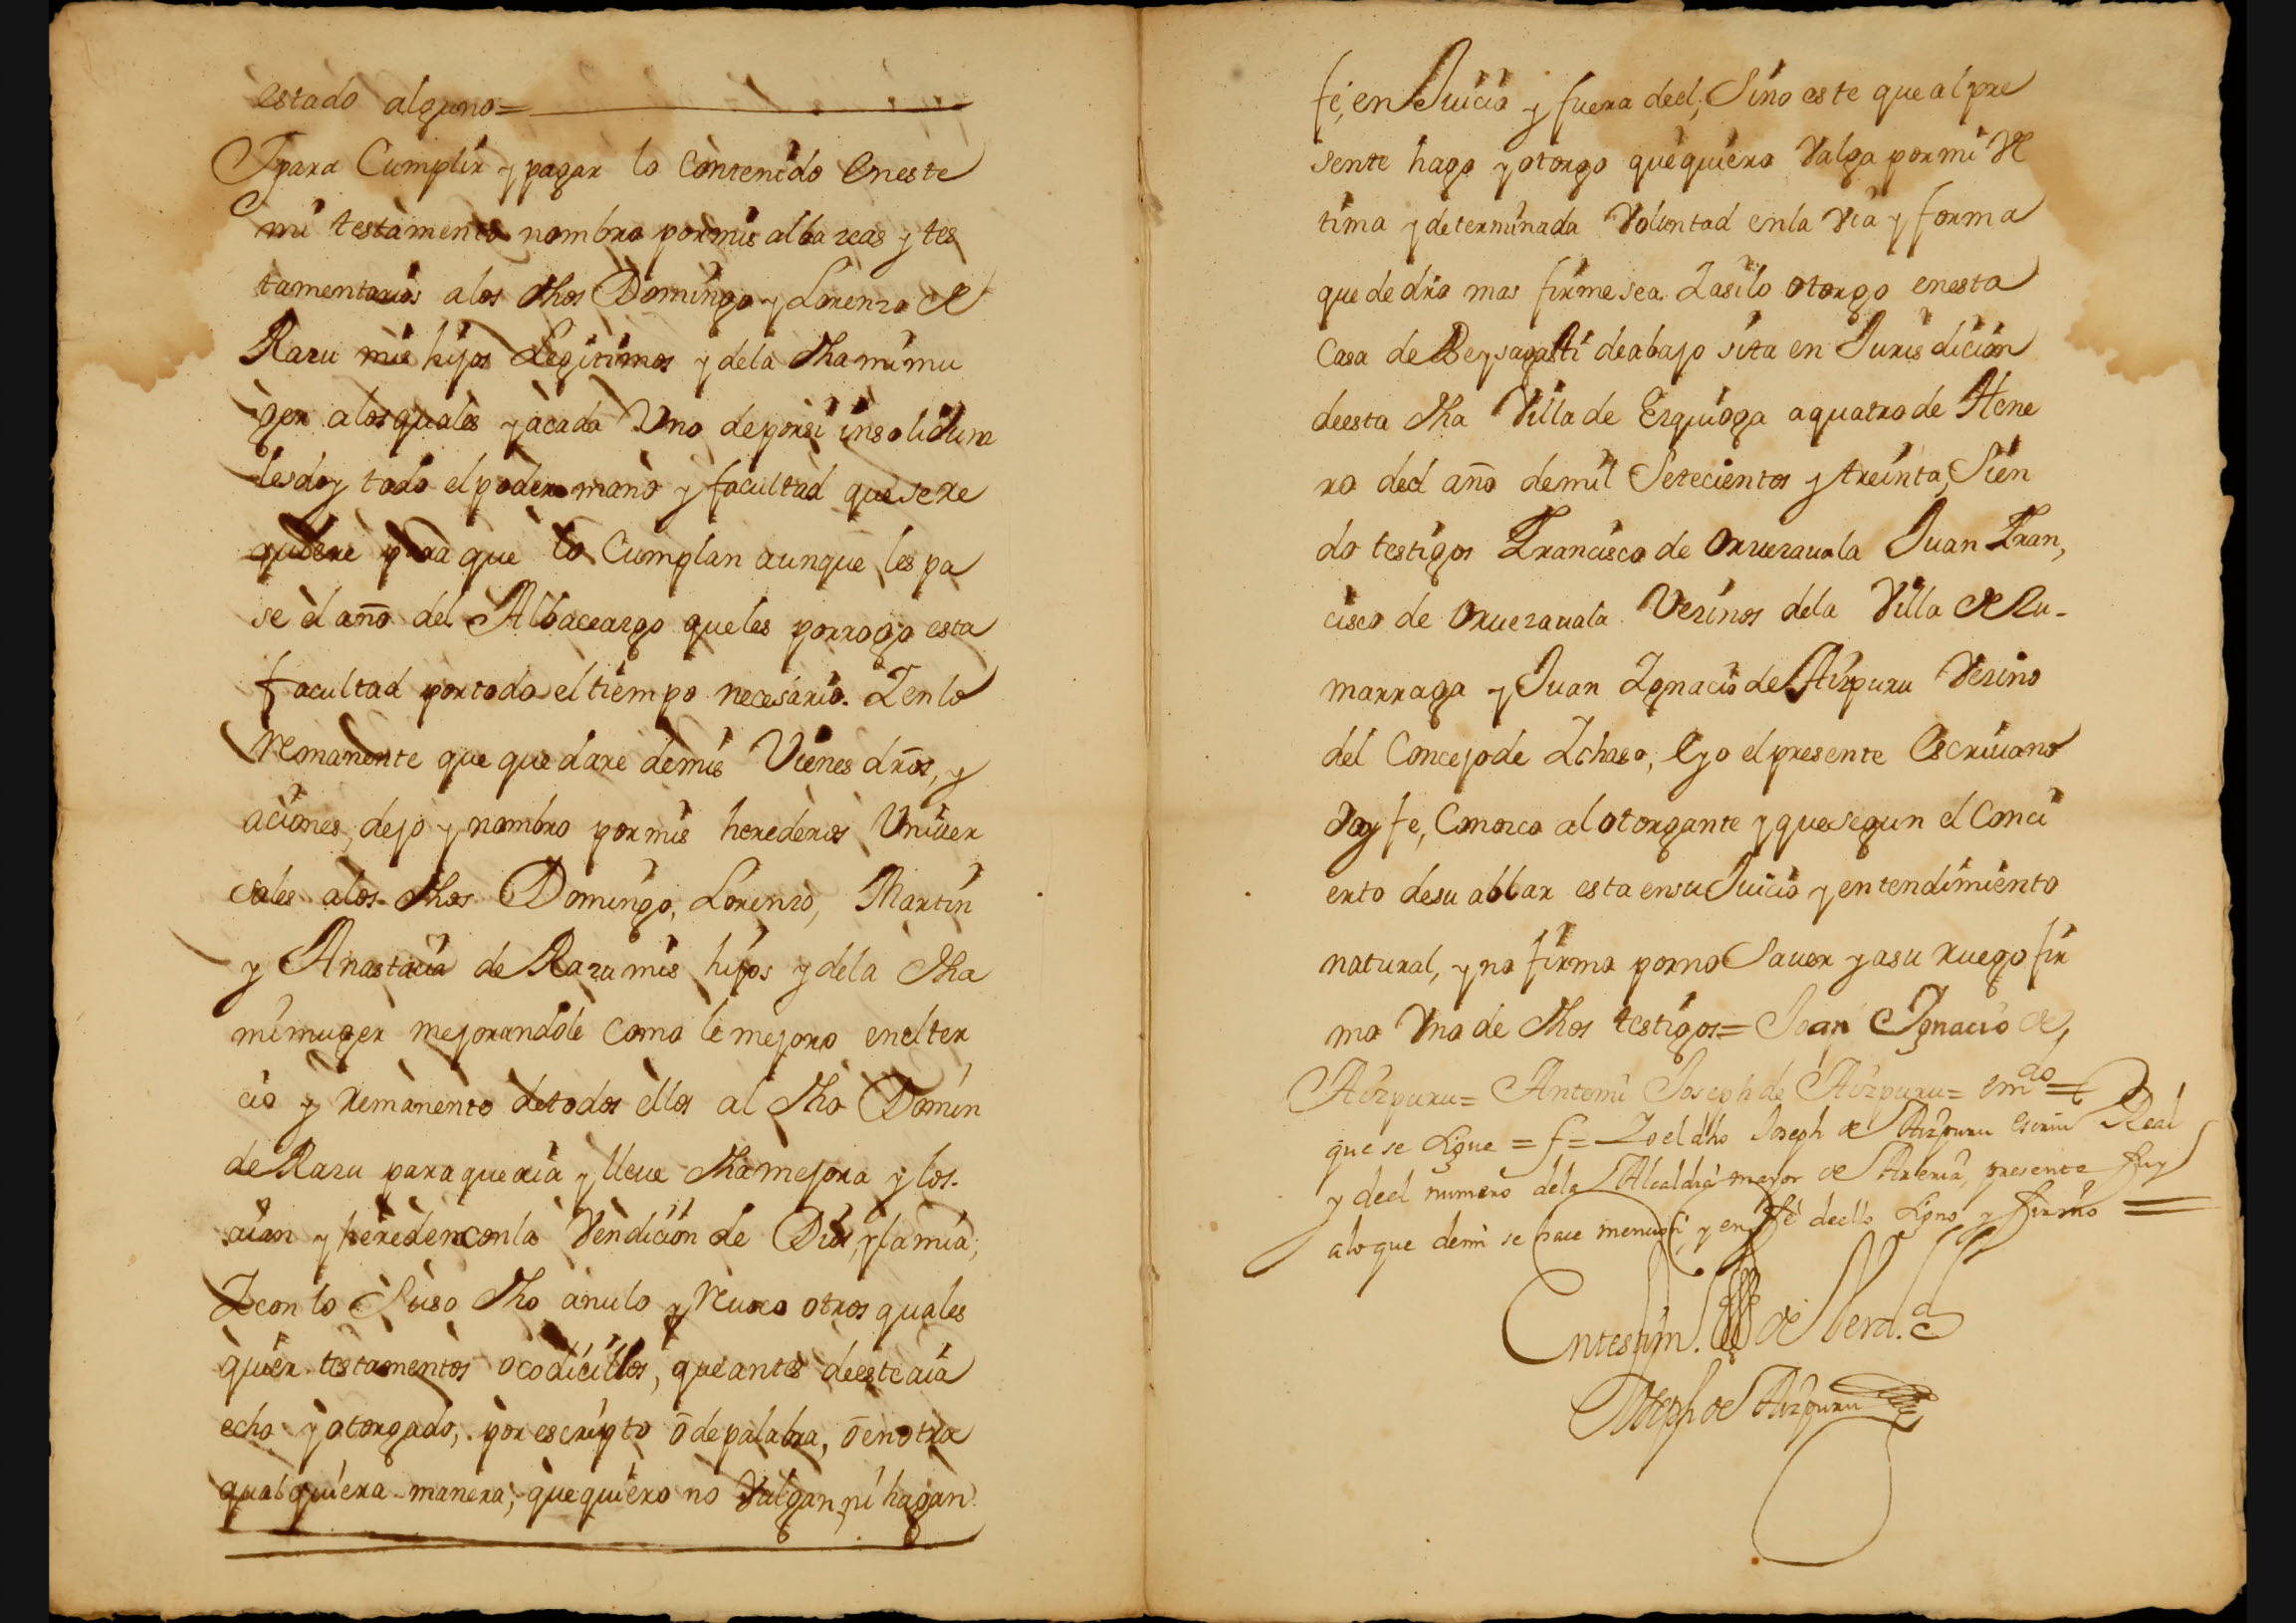 estado alguno=
Ypara Cumplir y pagar lo Contenido eneste
mi testamento nombro pormis albazeas y tes
tamentarios alos dhos Domingo y Lorenzo de
Razu mis hijos Legitimos y dela dha mi mu
ger alosquales yacada Uno deporsi insolidum
lesdoy todo elpoder mano y facultad quesere
quiere para que lo Cumplan aunque les pa
se el año del Albaceazgo queles porrogo esta
facultad portodo eltiempo necesario. Yenlo
remanente que quedare demis Vienes dr̃os, y
aciones, dejo y nombro pormis herederos Univer
sales alos dhos Domingo, Lorenzo, Martin
y Anastacia de Razu mis hijos y dela dha
mi muger mejorandole Como le mejoro enelter
cio y remanento detodos ellos al dho Domin
de Razu paraque aia y lleue dha mejora y los
aian y hereden conla Vendicion de Dios, y la mia;
Yconlo Suso dho anulo y reuoco otros quales
quier testamentos ocodicillos, queantes deesteaia
echo yotorgado, por escripto ō depalabra, ō enotra
qualquiera manera, quequiero no Valgan, ni hagan
fé, en Juicio y fuera deel, Sino este que alpre
sente hago yotorgo quequiero Valga pormi Ul
tima ydeterminada Voluntad enla Via y forma
que de dro mas firmesea. Yasilo otorgo enesta
Casa de Beysagasti deabajo sita en Jurisdicion
deesta dha Villa de Ezquioga aquatro de Hene
ro deel año demil Setecientos y treinta, Sien
do testigos Francisco de Oruezauala Juan Fran,
cisco de Oruezauala Vezinos dela Villa de Zu-
marraga y Juan Ygnacio de Aizpuru Vezino
del Concejo de Ychaso, Eyo elpresente Escriuano
doy fe, Conozco alotorgante yquesegun el Conci
erto desu ablar esta ensu Juicio yentendimiento
natural, yno firmo porno Sauer yasu ruego fir
mo Uno de dhos testigos= Joan Ignacio de
Aizpuru= Antemi Joseph de Aizpuru= emdo=
que se Signe = f = Yo el dho Joseph de Aizpuru escriuo Real
y deel numero dela Alcaldia mayor de Areria, presente fuy
alo que demi se hace mencion, y en fé deello Signo y firmo =
Entestim. de Verd.
Joseph de Aizpuru